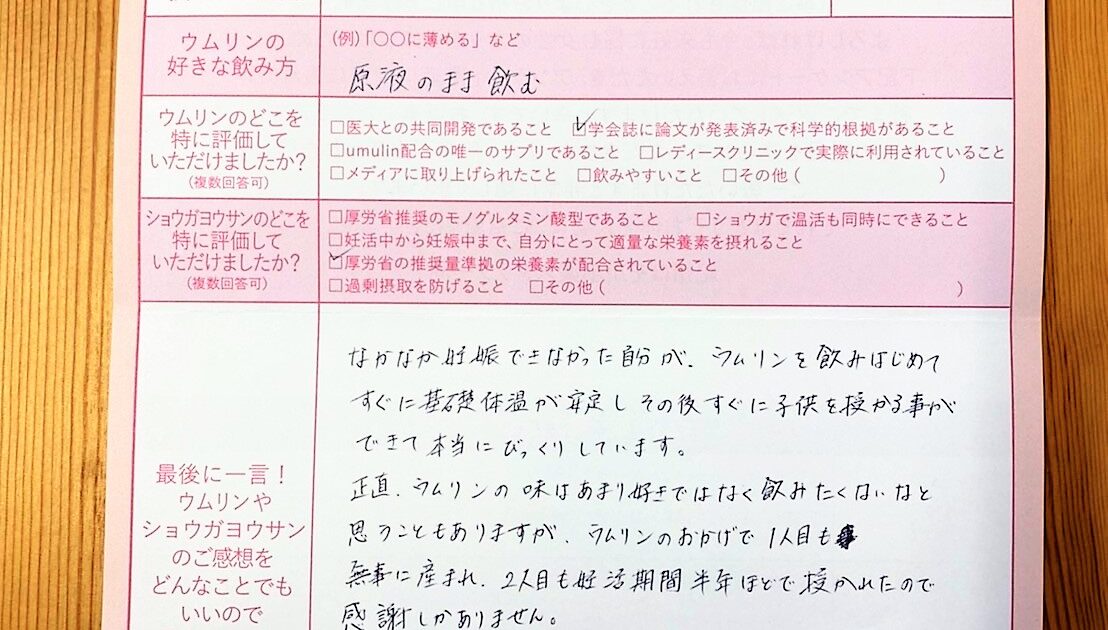 ウムリンの
好きな飲み方
(例)「〇〇に薄める」など
原液のまま飲む
ウムリンのどこを
特に評価して
いただけましたか?
(複数回答可)
□医大との共同開発であること ☑学会誌に論文が発表済みで科学的根拠があること
□umulin配合の唯一のサプリであること □レディースクリニックで実際に利用されていること
□メディアに取り上げられたこと □飲みやすいこと □その他( )
ショウガヨウサンのどこを
特に評価して
いただけましたか?
(複数回答可)
□厚労省推奨のモノグルタミン酸型であること □ショウガで温活も同時にできること
□妊活中から妊娠中まで、自分にとって適量な栄養素を摂れること
☑厚労省の推奨量準拠の栄養素が配合されていること
□過剰摂取を防げること □その他( )
最後に一言!
ウムリンや
ショウガヨウサン
のご感想を
どんなことでも
いいので
なかなか妊娠できなかった自分が、ウムリンを飲みはじめて
すぐに基礎体温が安定しその後すぐに子供を授かる事が
できて本当にびっくりしています。
正直、ウムリンの味はあまり好きではなく飲みたくないなと
思うこともありますが、ウムリンのおかげで1人目も
無事に産まれ、2人目も妊活期間半年ほどで授かれたので
感謝しかありません。